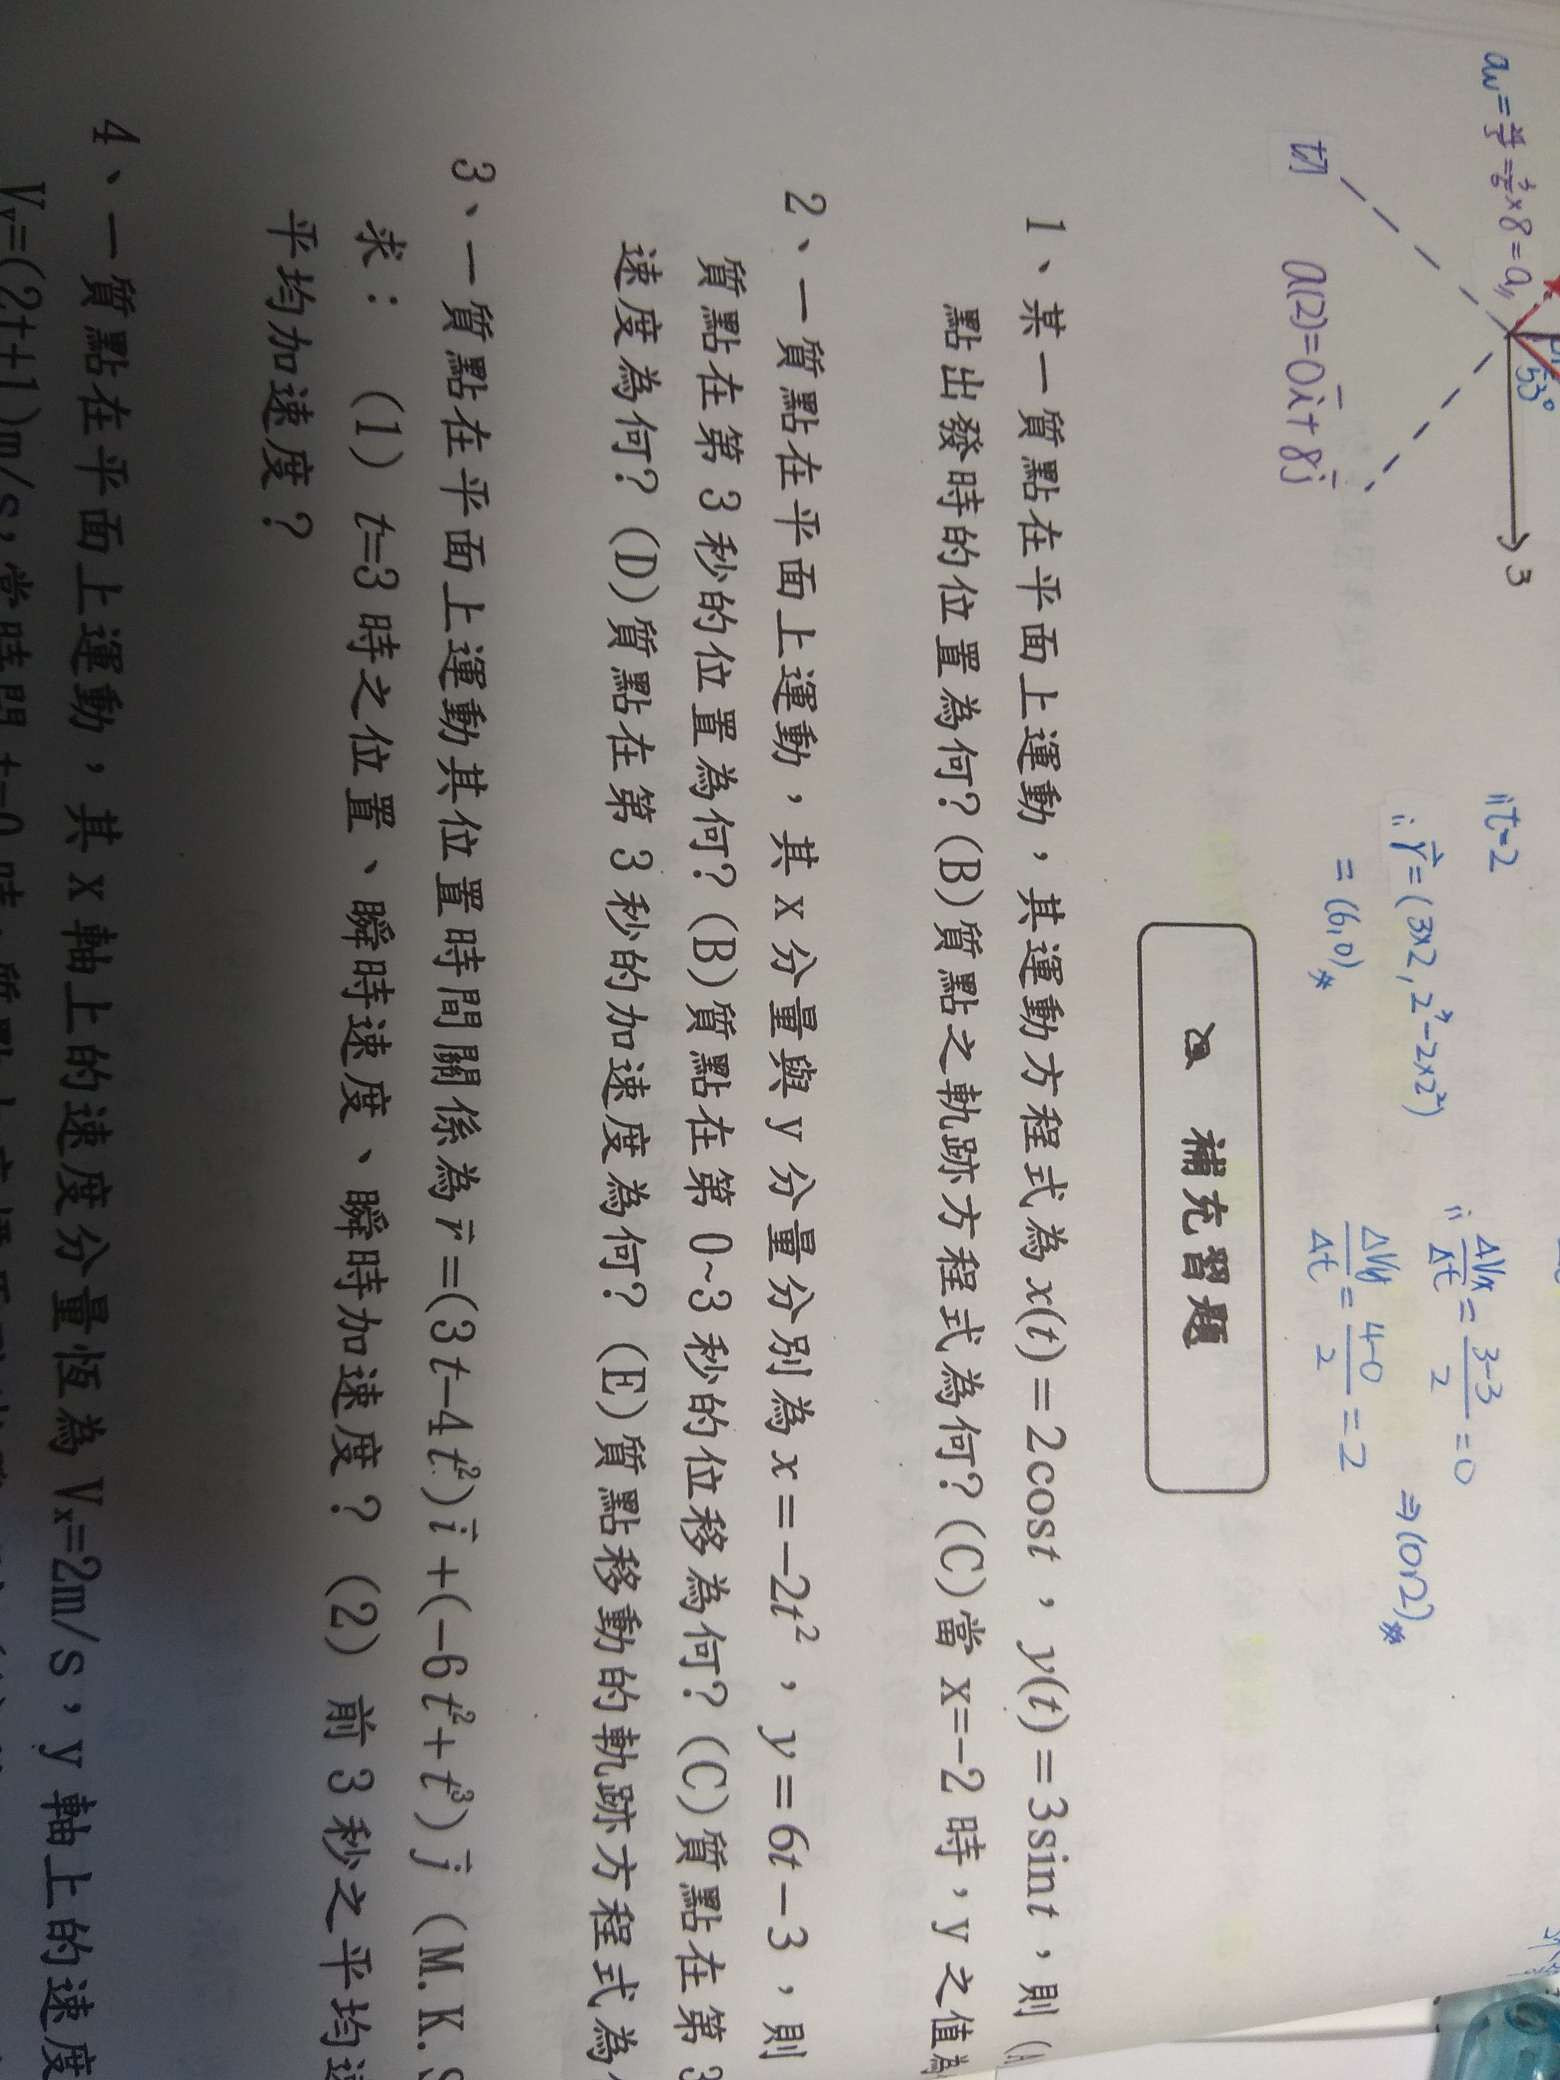 ∴t=2
∴r⃗=(3×2, 2³-2×2²)
=(6,0)※
∴ΔVx/Δt=3-3/2=0
ΔVy/Δt=4-0/2=2
⇒(0,2)※
53°
3
切 a(2)=0i+8j
補充習題
1、某一質點在平面上運動，其運動方程式為x(t)=2cost，y(t)=3sint，則(A
點出發時的位置為何?(B)質點之軌跡方程式為何?(C)當x=-2時，y之值為
2、一質點在平面上運動，其x分量與y分量分別為x=-2t²，y=6t-3，則
質點在第3秒的位置為何?(B)質點在第0~3秒的位移為何?(C)質點在第3
速度為何?(D)質點在第3秒的加速度為何?(E)質點移動的軌跡方程式為
3、一質點在平面上運動其位置時間關係為r⃗=(3t-4t²)i⃗+(-6t²+t³)j⃗(M.K.S
求：(1)t=3時之位置、瞬時速度、瞬時加速度？(2)前3秒之平均速
平均加速度？
4、一質點在平面上運動，其x軸上的速度分量恆為Vx=2m/s，y軸上的速度
Vy=(2t+1)m/s，當時間t=0時，質點